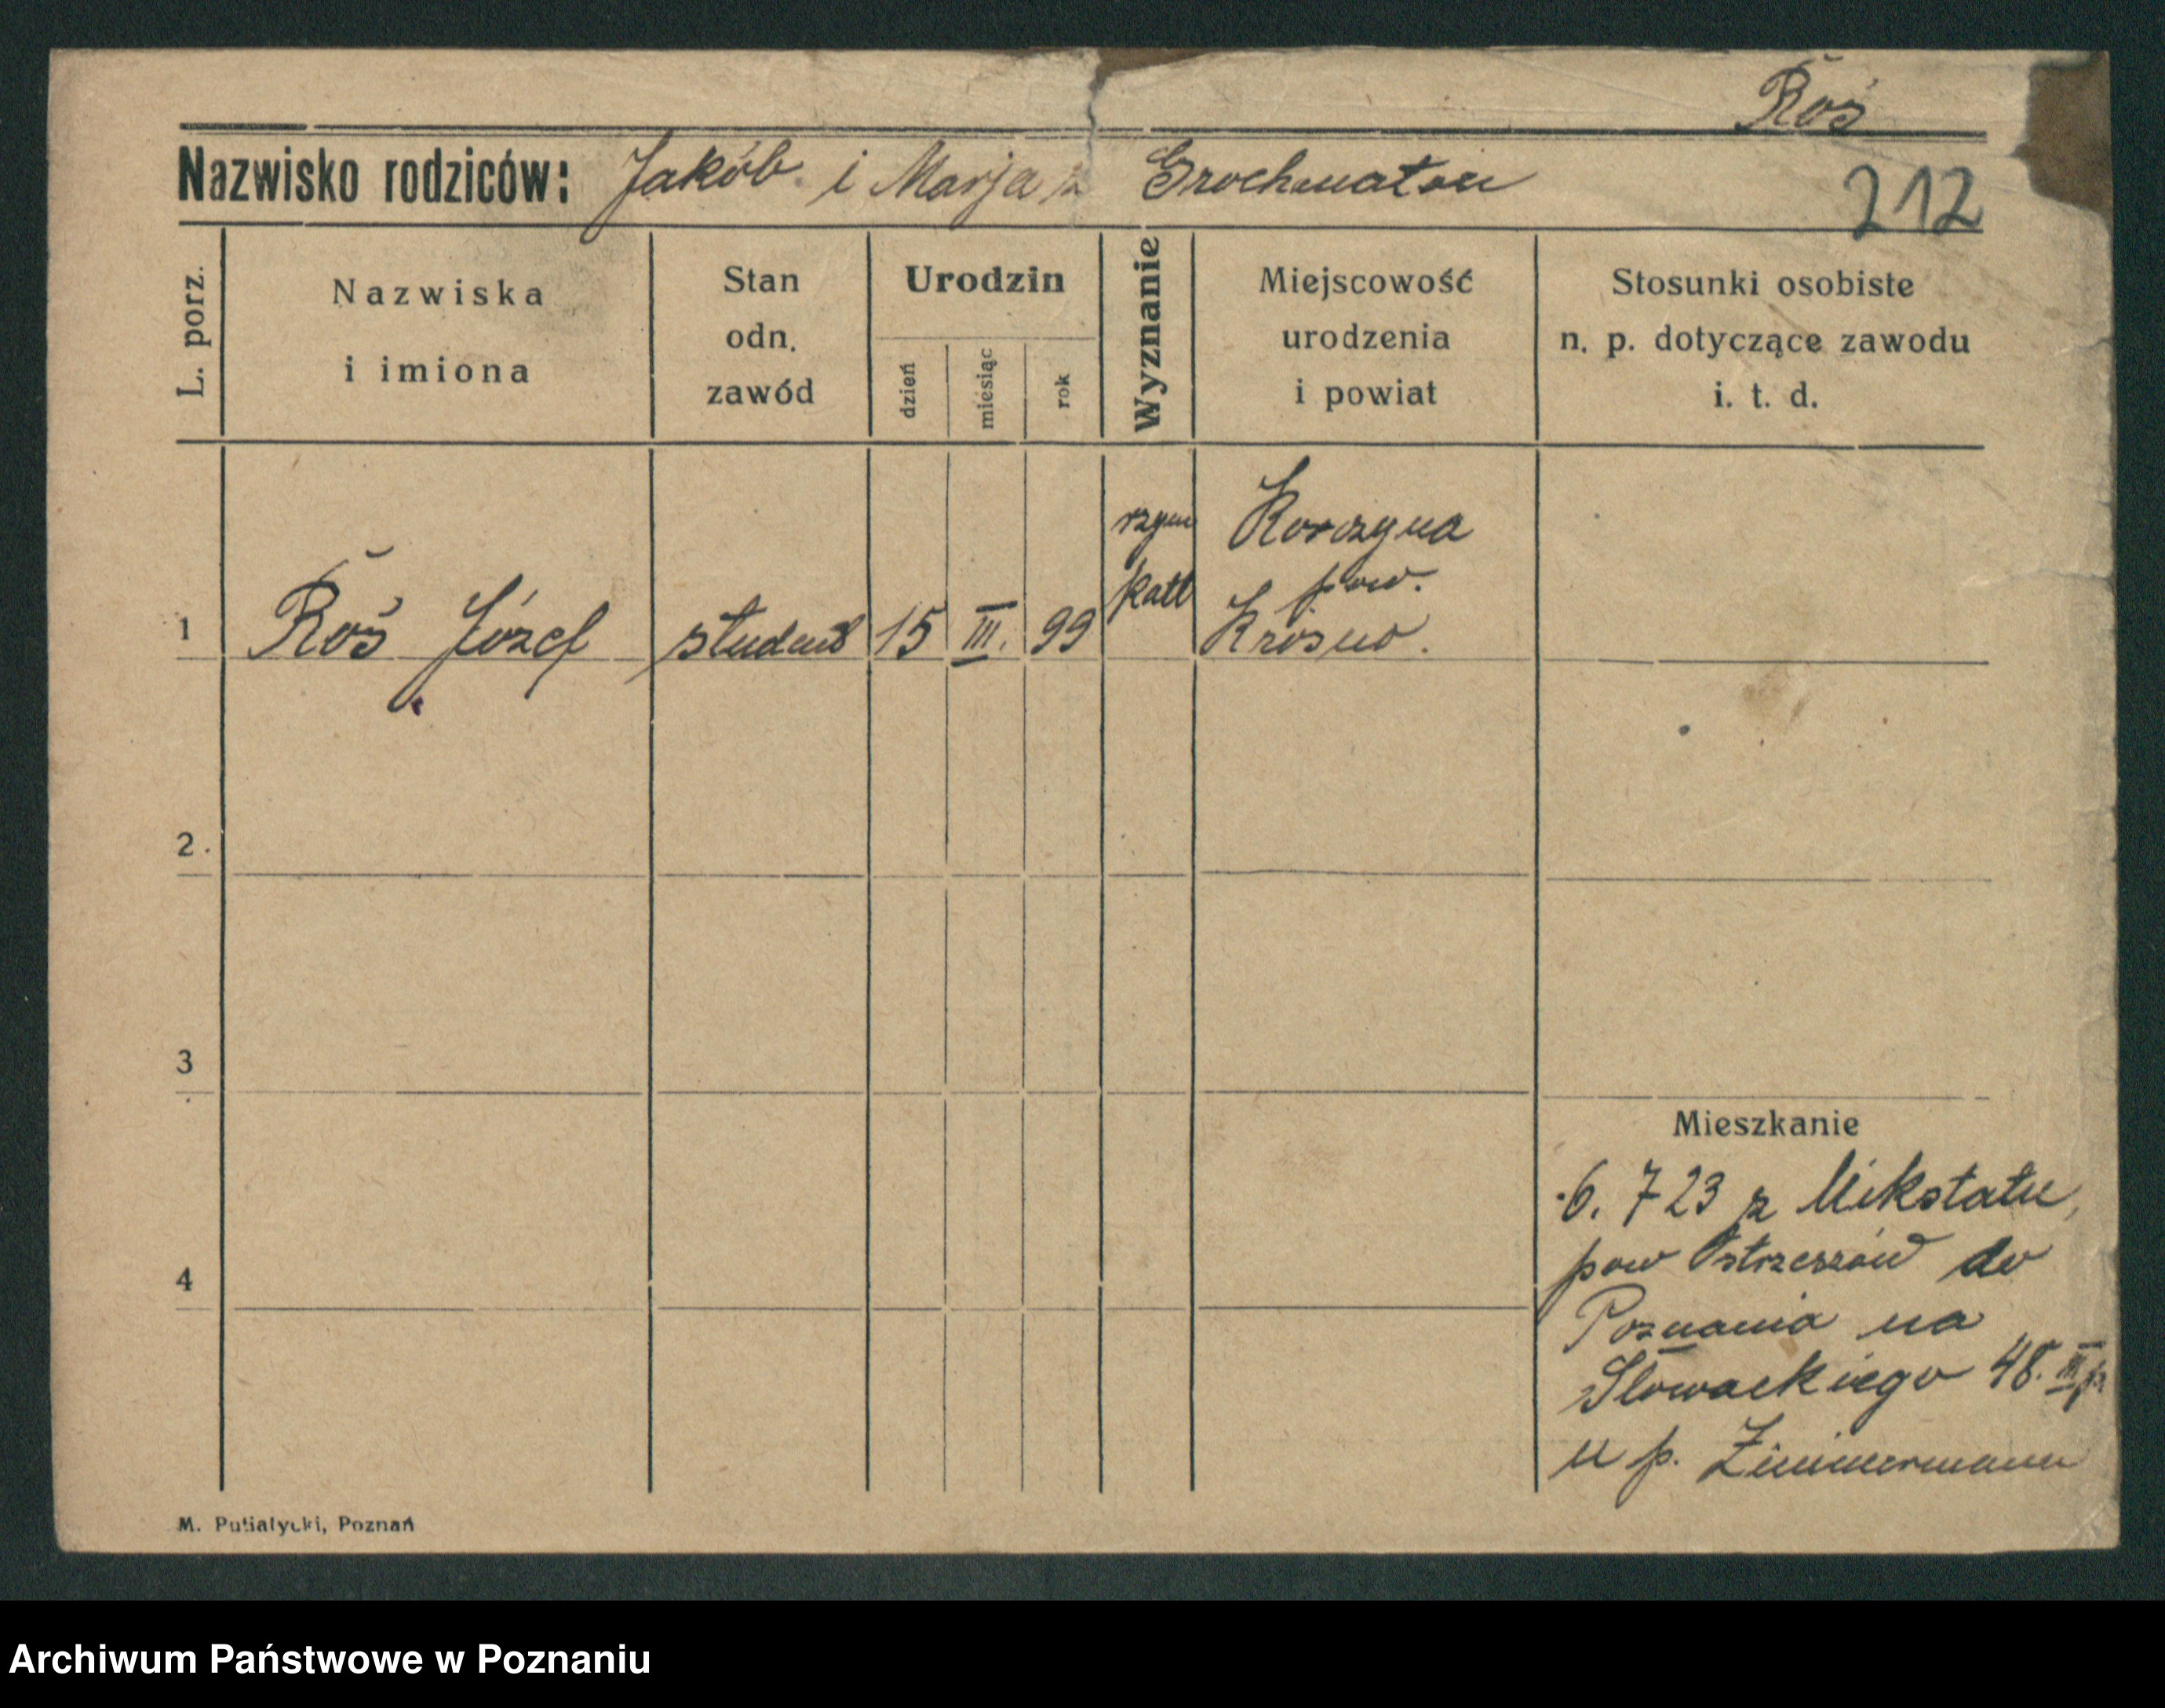 Roś
Nazwisko rodziców: Jakób i Marja z Grochmatów
212
L. porz.
Nazwiska
i imiona
Stan
odn.
zawód
Urodzin
dzień
miesiąc
rok
Wyznanie
Miejscowość
urodzenia
i powiat
Stosunki osobiste
n. p. dotyczące zawodu
i. t. d.
1 Roś Józef student 15 III. 99
rzym
katl
Korczyna
pow.
Krosno.
2.
3
4
Mieszkanie
6. 7 23 z Mikstatu,
pow Ostrzeszów do
Poznania na
Słowackiego 48. III p
u p. Zimmermann
M. Putiatycki, Poznań
Archiwum Państwowe w Poznaniu